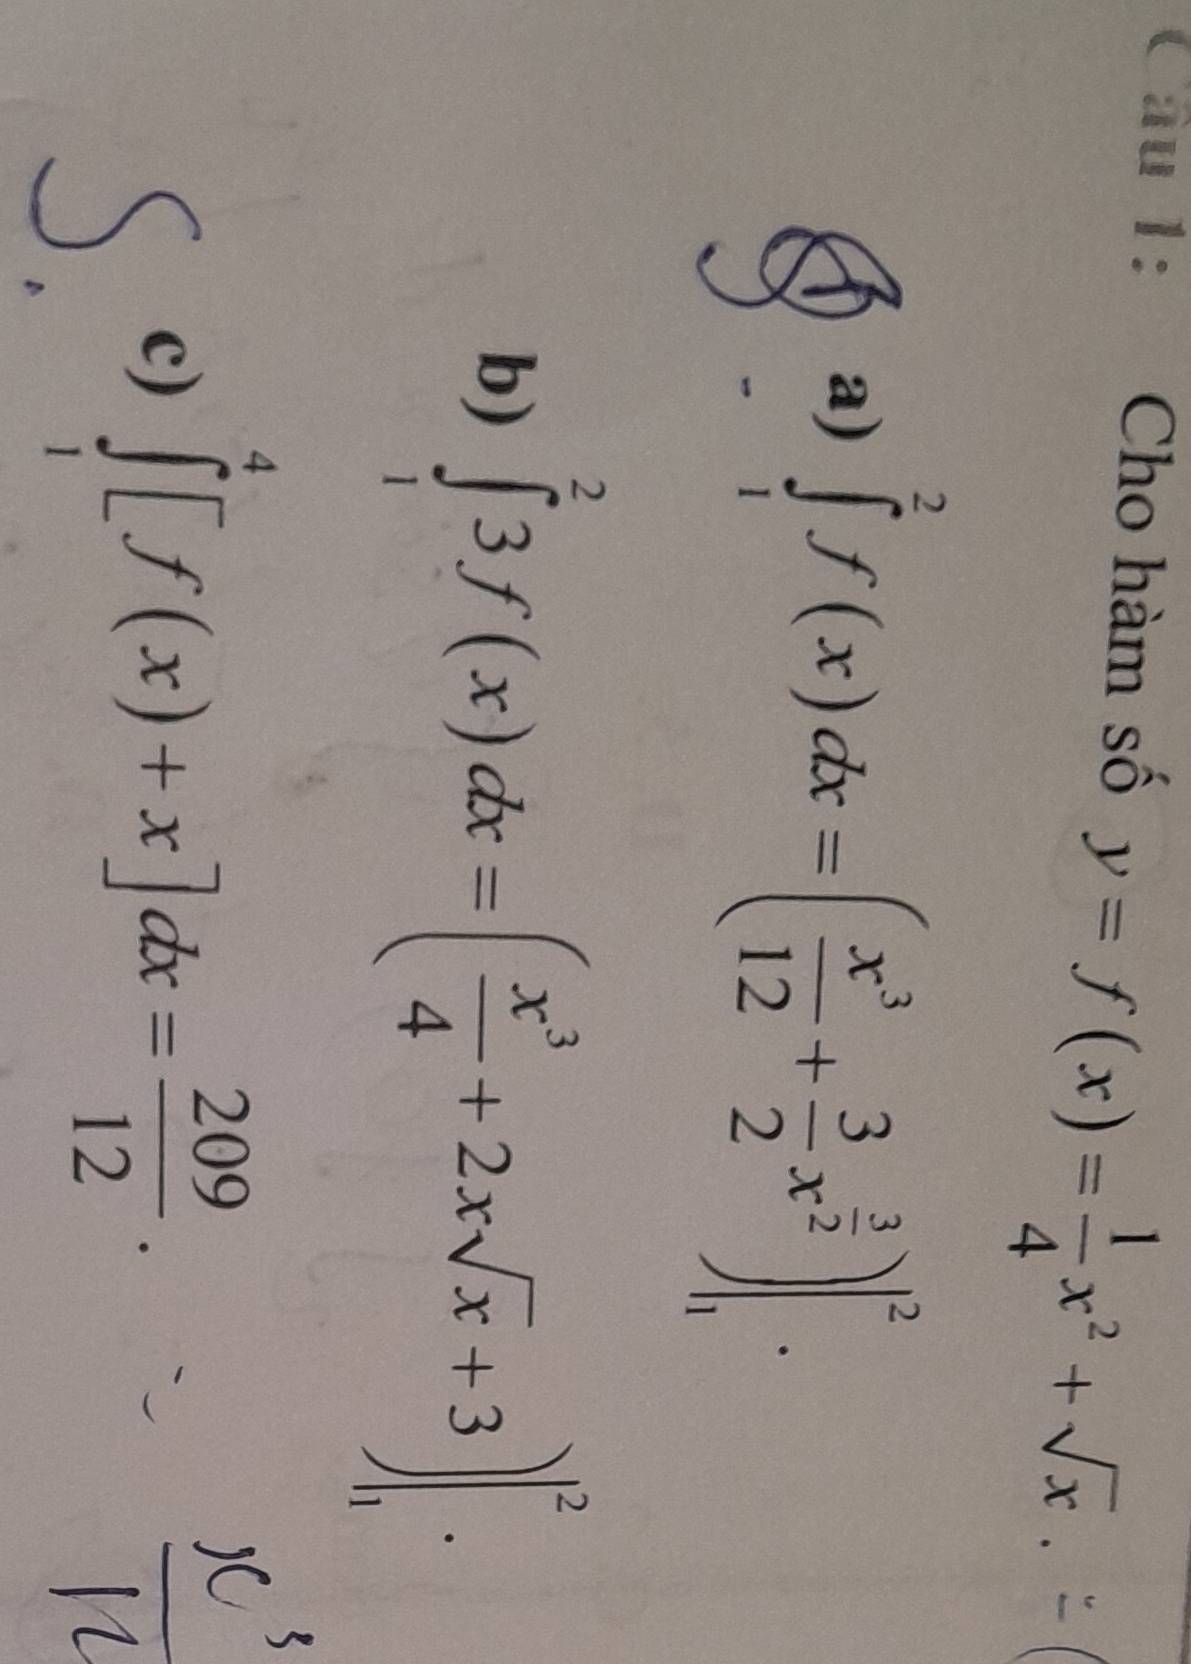 Câu 1: Cho hàm số y = f(x) = 1/4 x² + √x.
a) ∫₁² f(x)dx = (x³/12 + 3/2 x^(3/2))|₁².
b) ∫₁² 3f(x)dx = (x³/4 + 2x√x + 3)|₁².
S. c) ∫₁⁴ [f(x) + x]dx = 209/12.
x³/12